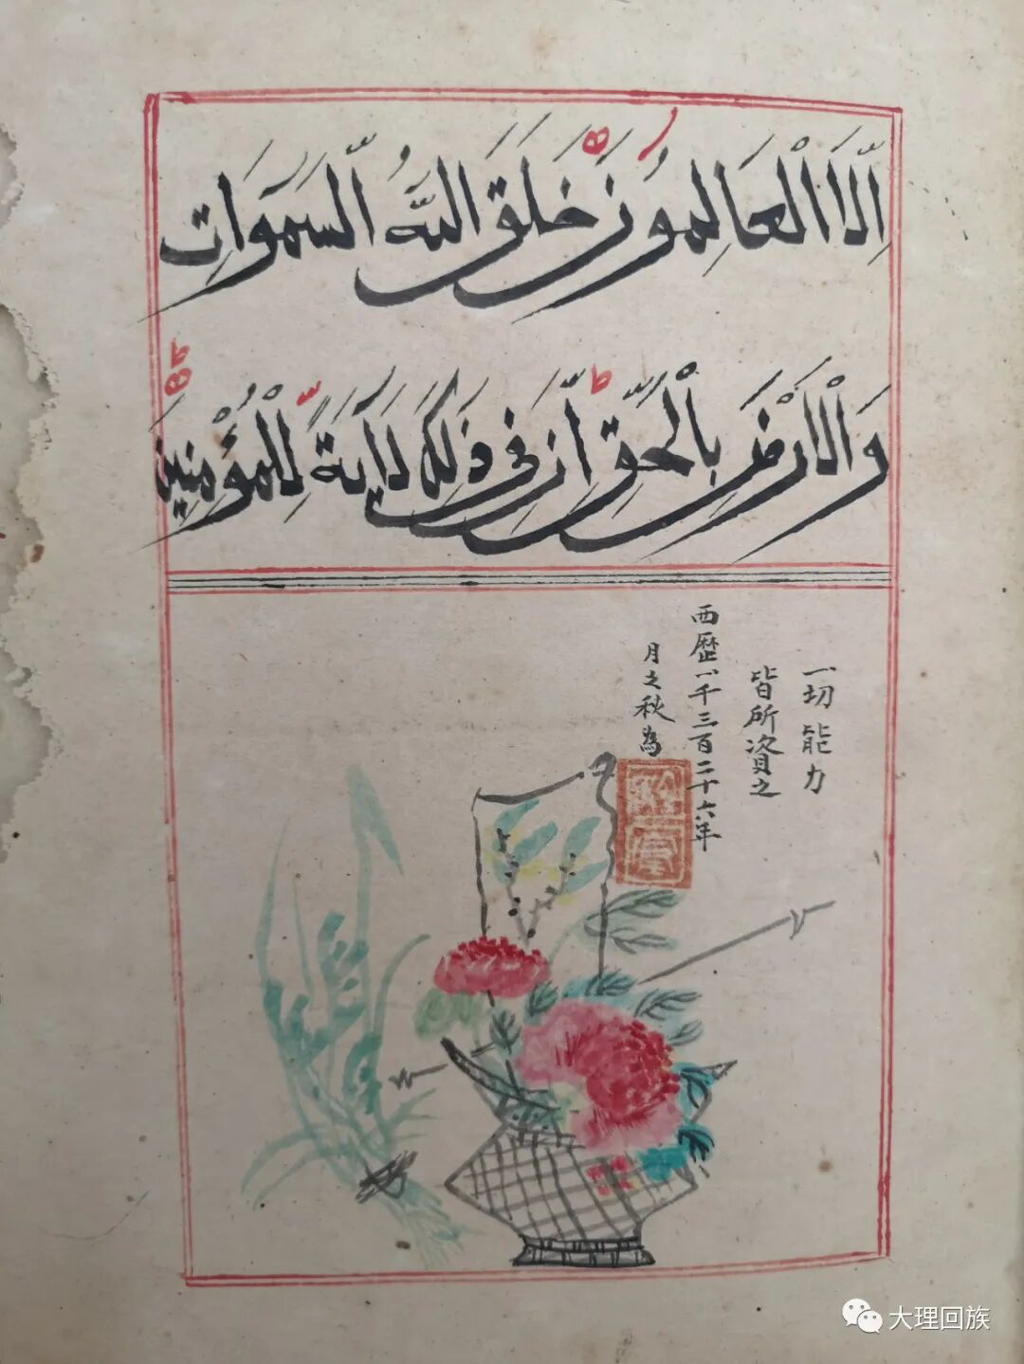 اِلَّا الْعَالِمُونَ خَلَقَ اللّٰهُ السَّمَوَاتِ
وَالْاَرْضَ بِالْحَقِّ اِنَّ فِى ذٰلِكَ لَاٰيَةً لِلْمُؤْمِنِينَ
一切能力
皆所資之
西歷一千三百二十六年
月之秋為
大理回族